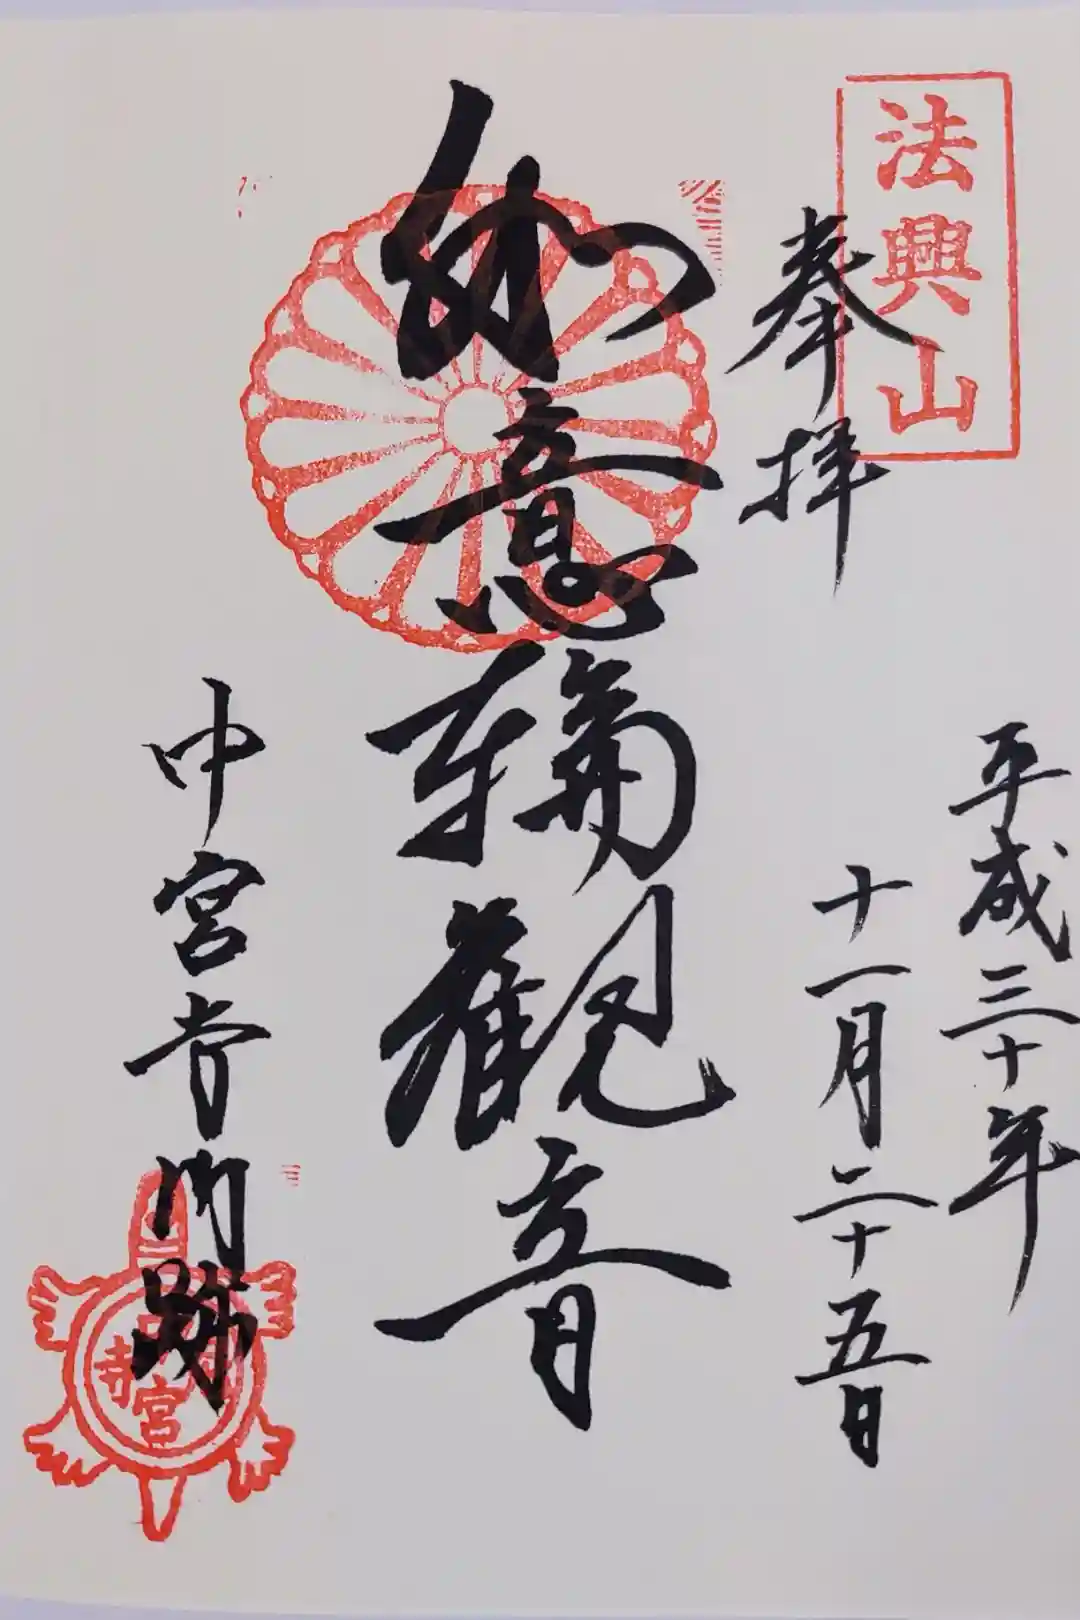 法興山
奉拝
平成三十年
十一月二十五日
如意輪観音
中宮寺門跡